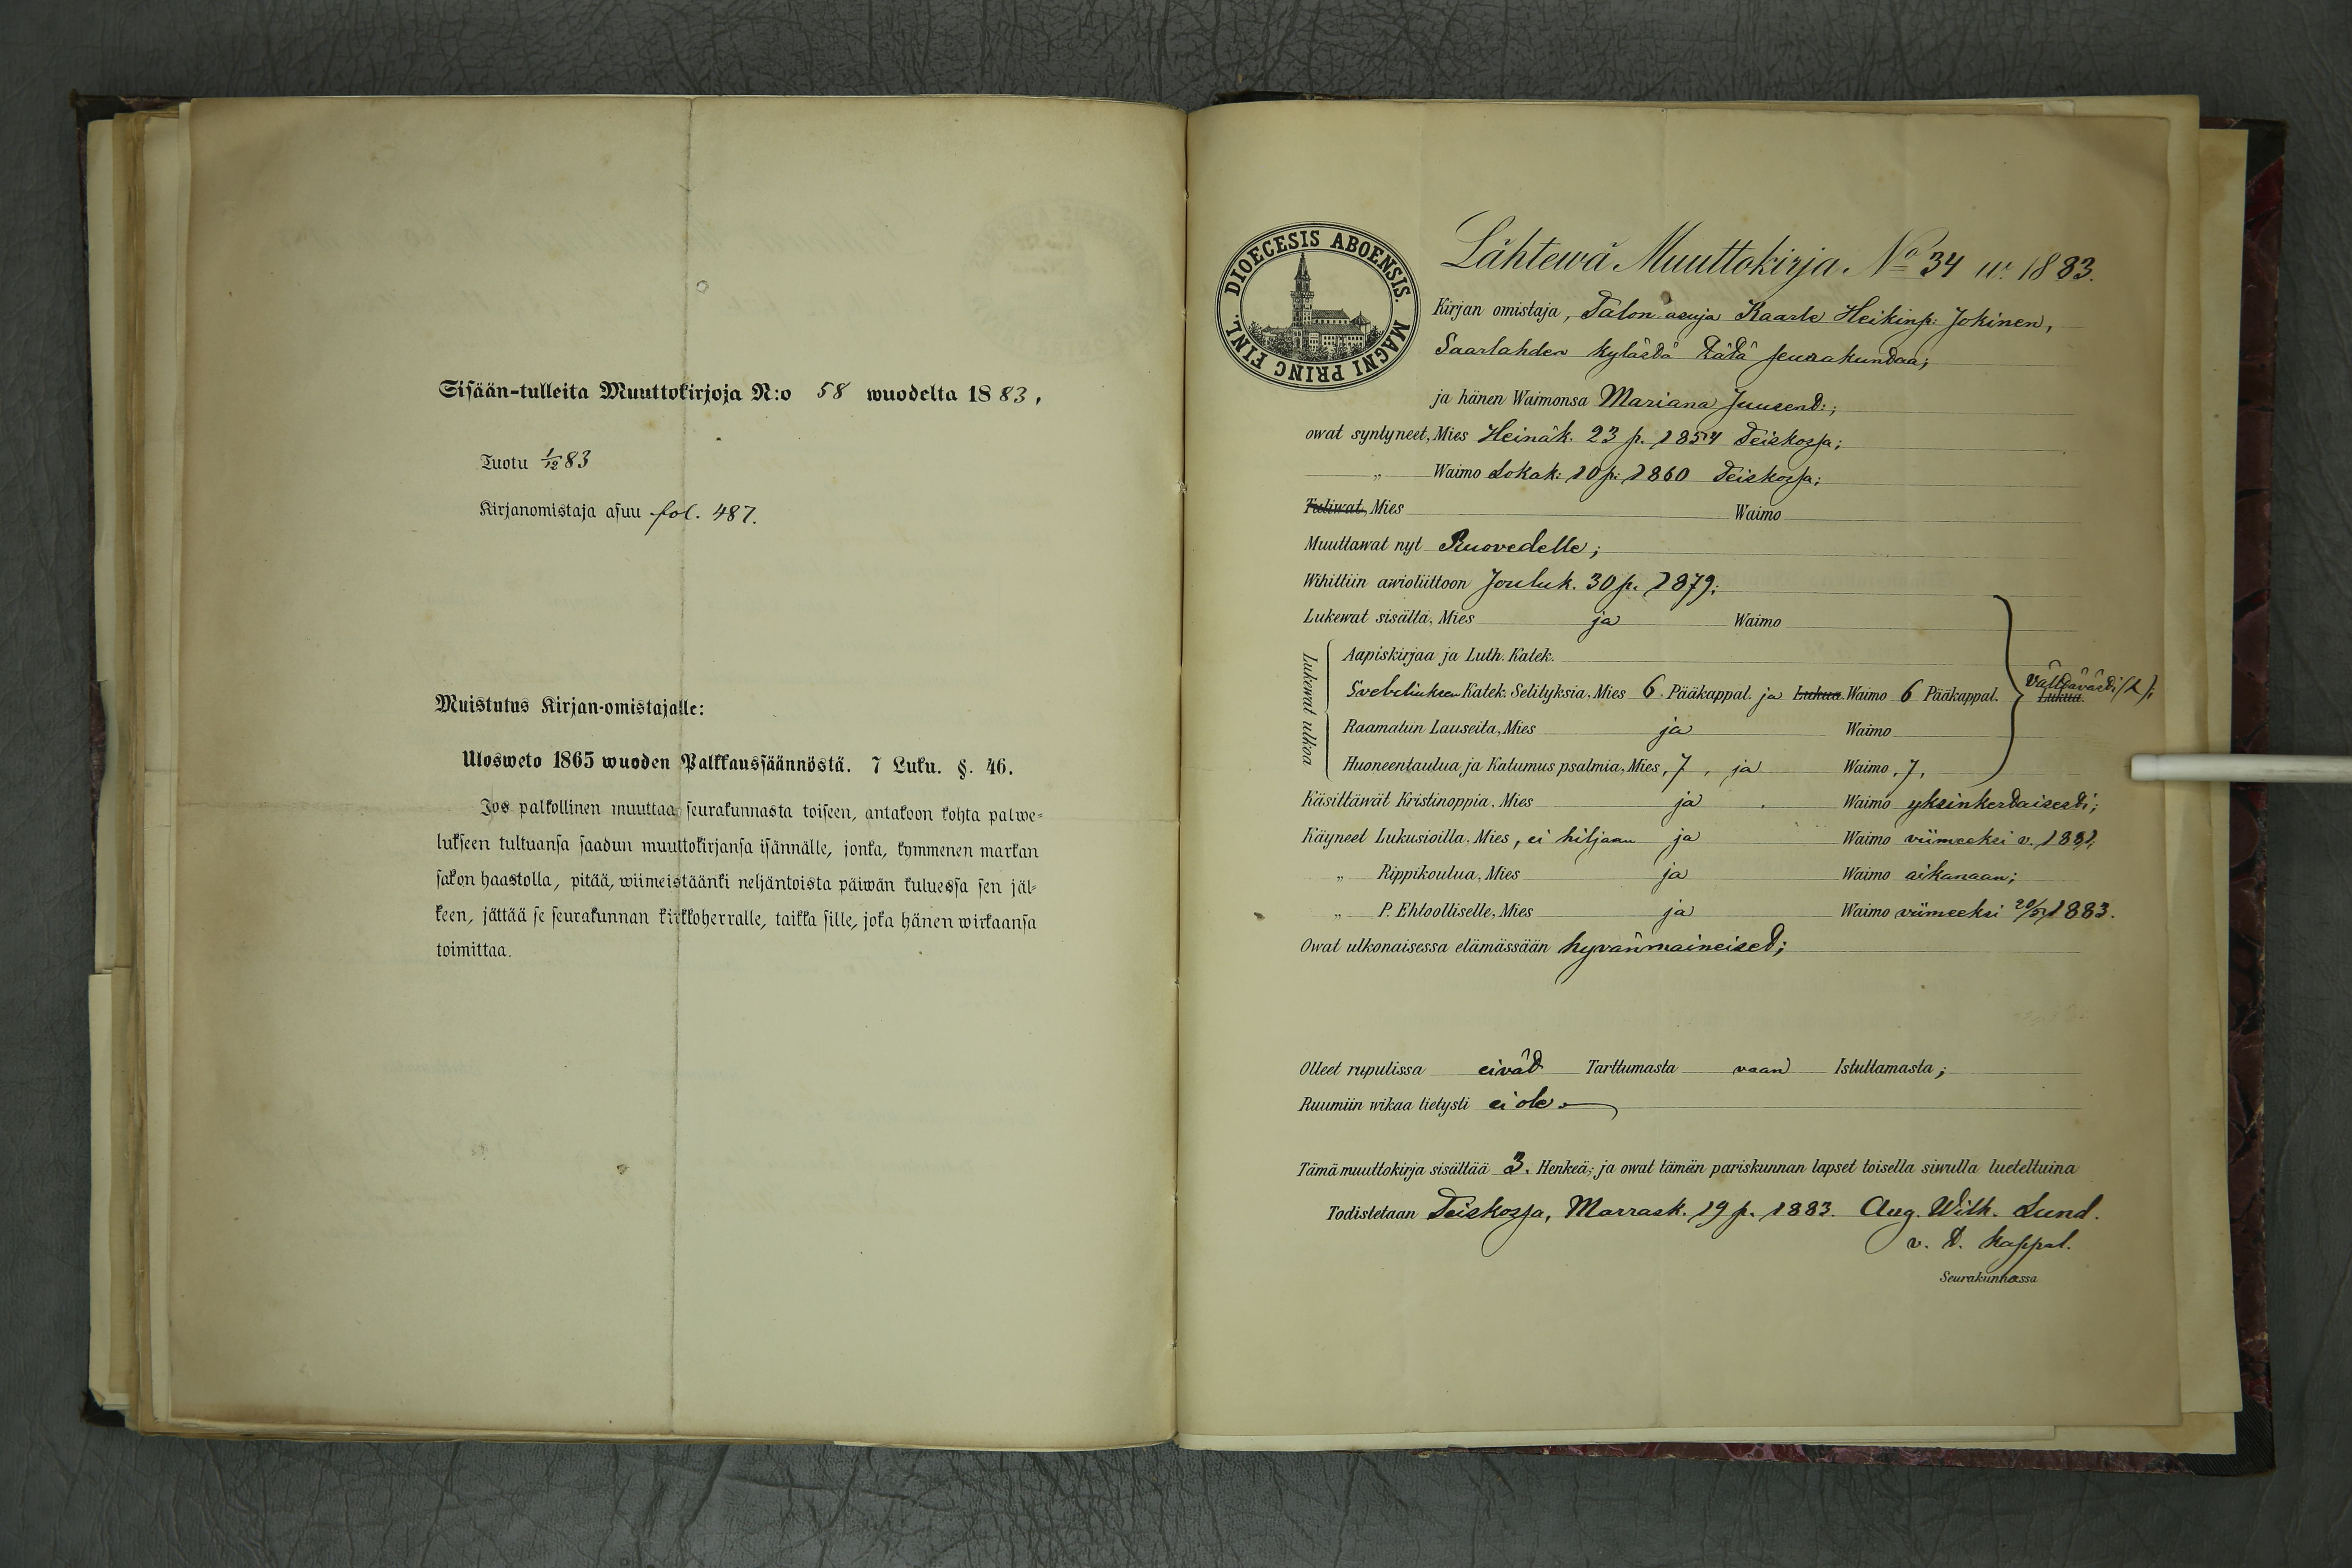 Sisään-tulleita Muuttokirjoja N:o 58 wuodelta 1883.
Tuotu 1/12 83
Kirjanomistaja asuu fol. 487.
Muistutus Kirjan-omistajalle:
Ulosweto 1865 wuoden Palkkaussäännöstä. 7 Luku. §. 46.
Jos palkollinen muuttaa seurakunnasta toiseen, antakoon kohta palwe-
lukseen tultuansa saadun muuttokirjansa isännälle, jonka, kymmenen markan
sakon haastolla, pitää, wiimeistäänki neljäntoista päiwän kuluessa sen jäl-
keen, jättää se seurakunnan kirkkoherralle, taikka sille, joka hänen wirkaansa
toimittaa.
DIOECESIS ABOENSIS. MAGNI PRINC FINL.
Lähtewä Muuttokirja. No 34 w. 1883.
Kirjan omistaja, Talon asuja Kaarle Heikinp: Jokinen,
Saarlahden kylästä tätä seurakuntaa;
ja hänen Waimonsa Mariana Juusent:;
owat syntyneet, Mies Heinäk. 23 p. 1854 Teiskossa;
„ Waimo Lokak: 10 p: 1860 Teiskossa;
Tuliwat, Mies Waimo
Muuttawat nyt Ruovedelle;
Wihittiin awioliittoon Jouluk. 30 p. 1879;
Lukewat sisältä, Mies ja Waimo
Lukewat ulkoa
Aapiskirjaa ja Luth. Katek.
Svebeliuksen Katek. Selityksiä, Mies 6 Pääkappal. ja Lukua. Waimo 6 Pääkappal. Lukua.
välttävästi (1);
Raamatun Lauseita, Mies ja Waimo
Huoneentaulua ja Katumus psalmia, Mies, 7, ja Waimo, 7,
Käsittäwät Kristinoppia, Mies ja Waimo yksinkertaisesti;
Käyneet Lukusioilla, Mies, ei hiljaan ja Waimo viimeeksi v. 1881;
„ Rippikoulua, Mies ja Waimo aikanaan;
„ P. Ehtoolliselle, Mies ja Waimo viimeeksi 20/5 1883.
Owat ulkonaisessa elämässään hyvänmaineiset;
Olleet rupulissa eivät Tarttumasta vaan Istuttamasta;
Ruumiin wikaa tietysti ei ole.
Tämä muuttokirja sisältää 3. Henkeä; ja owat tämän pariskunnan lapset toisella siwulla lueteltuina
Todistetaan Teiskossa, Marrask. 19 p. 1883. Aug. Wilh. Lund.
v. t. Kappal.
Seurakunnassa